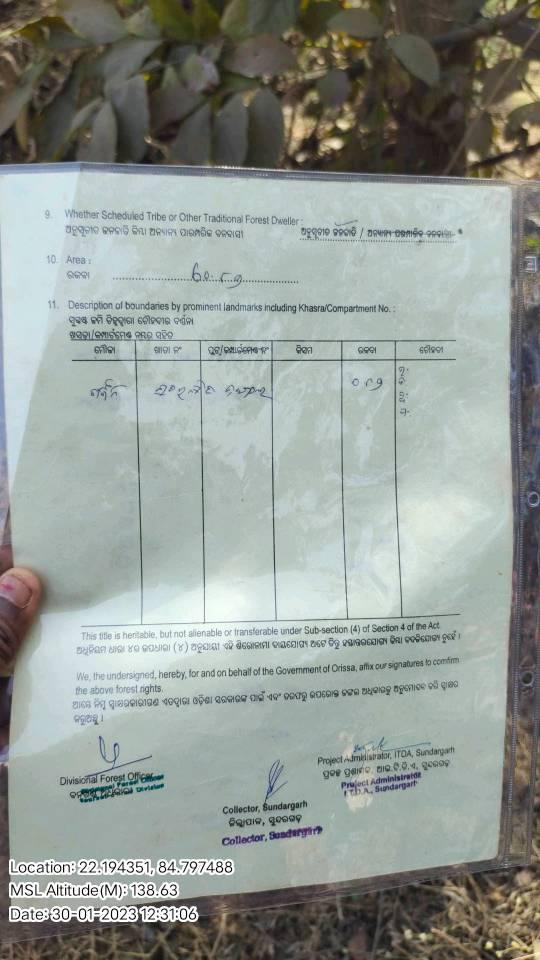 9. Whether Scheduled Tribe or Other Traditional Forest Dweller :
ଅନୁସୂଚିତ ଜନଜାତି କିମ୍ବା ଅନ୍ୟାନ୍ୟ ପାରମ୍ପରିକ ବନବାସୀ ଅନୁସୂଚିତ ଜନଜାତି / ଅନ୍ୟାନ୍ୟ ପାରମ୍ପରିକ ବନବାସୀ *
10. Area :
ରକବା
11. Description of boundaries by prominent landmarks including Khasra/Compartment No. :
ସୁସ୍ପଷ୍ଟ ଜମି ଚିହ୍ନଦ୍ୱାରା ଚୌହଦୀର ବର୍ଣ୍ଣନା
ଖସଡ଼ା/କମ୍ପାର୍ଟମେଣ୍ଟ ନମ୍ବର ସହିତ
ମୌଜା ଖାତା ନଂ ପ୍ଲଟ୍/କମ୍ପାର୍ଟମେଣ୍ଟ ନଂ କିସମ ରକବା ଚୌହଦୀ
୦.୮୬ ଉ:
ଦ:
ପୂ:
ପ:
This title is heritable, but not alienable or transferable under Sub-section (4) of Section 4 of the Act.
ଅଧିନିୟମ ଧାରା ୪ର ଉପଧାରା (୪) ଅନୁଯାୟୀ ଏହି ଶିରୋନାମା ଦାୟଯୋଗ୍ୟ ଅଟେ କିନ୍ତୁ ହସ୍ତାନ୍ତରଯୋଗ୍ୟ କିମ୍ବା ବଦଳିଯୋଗ୍ୟ ନୁହେଁ ।
We, the undersigned, hereby, for and on behalf of the Government of Orissa, affix our signatures to confirm
the above forest rights.
ଆମେ ନିମ୍ନ ସ୍ୱାକ୍ଷରକାରୀଗଣ ଏତଦ୍ୱାରା ଓଡ଼ିଶା ସରକାରଙ୍କ ପାଇଁ ଏବଂ ତରଫରୁ ଉପରୋକ୍ତ ଜଙ୍ଗଲ ଅଧିକାରକୁ ଅନୁମୋଦନ କରି ସ୍ୱାକ୍ଷର
କରୁଅଛୁ ।
Divisional Forest Officer
Divisional Forest Officer
Division
Project Administrator, ITDA, Sundargarh
ପ୍ରକଳ୍ପ ପ୍ରଶାସକ, ଆଇ.ଟି.ଡି.ଏ, ସୁନ୍ଦରଗଡ଼
Project Administrator
I.T.D.A., Sundargarh
Collector, Sundargarh
ଜିଲ୍ଲାପାଳ, ସୁନ୍ଦରଗଡ଼
Collector, Sundargarh
Location: 22.194351, 84.797488
MSL Altitude(M): 138.63
Date: 30-01-2023 12:31:06